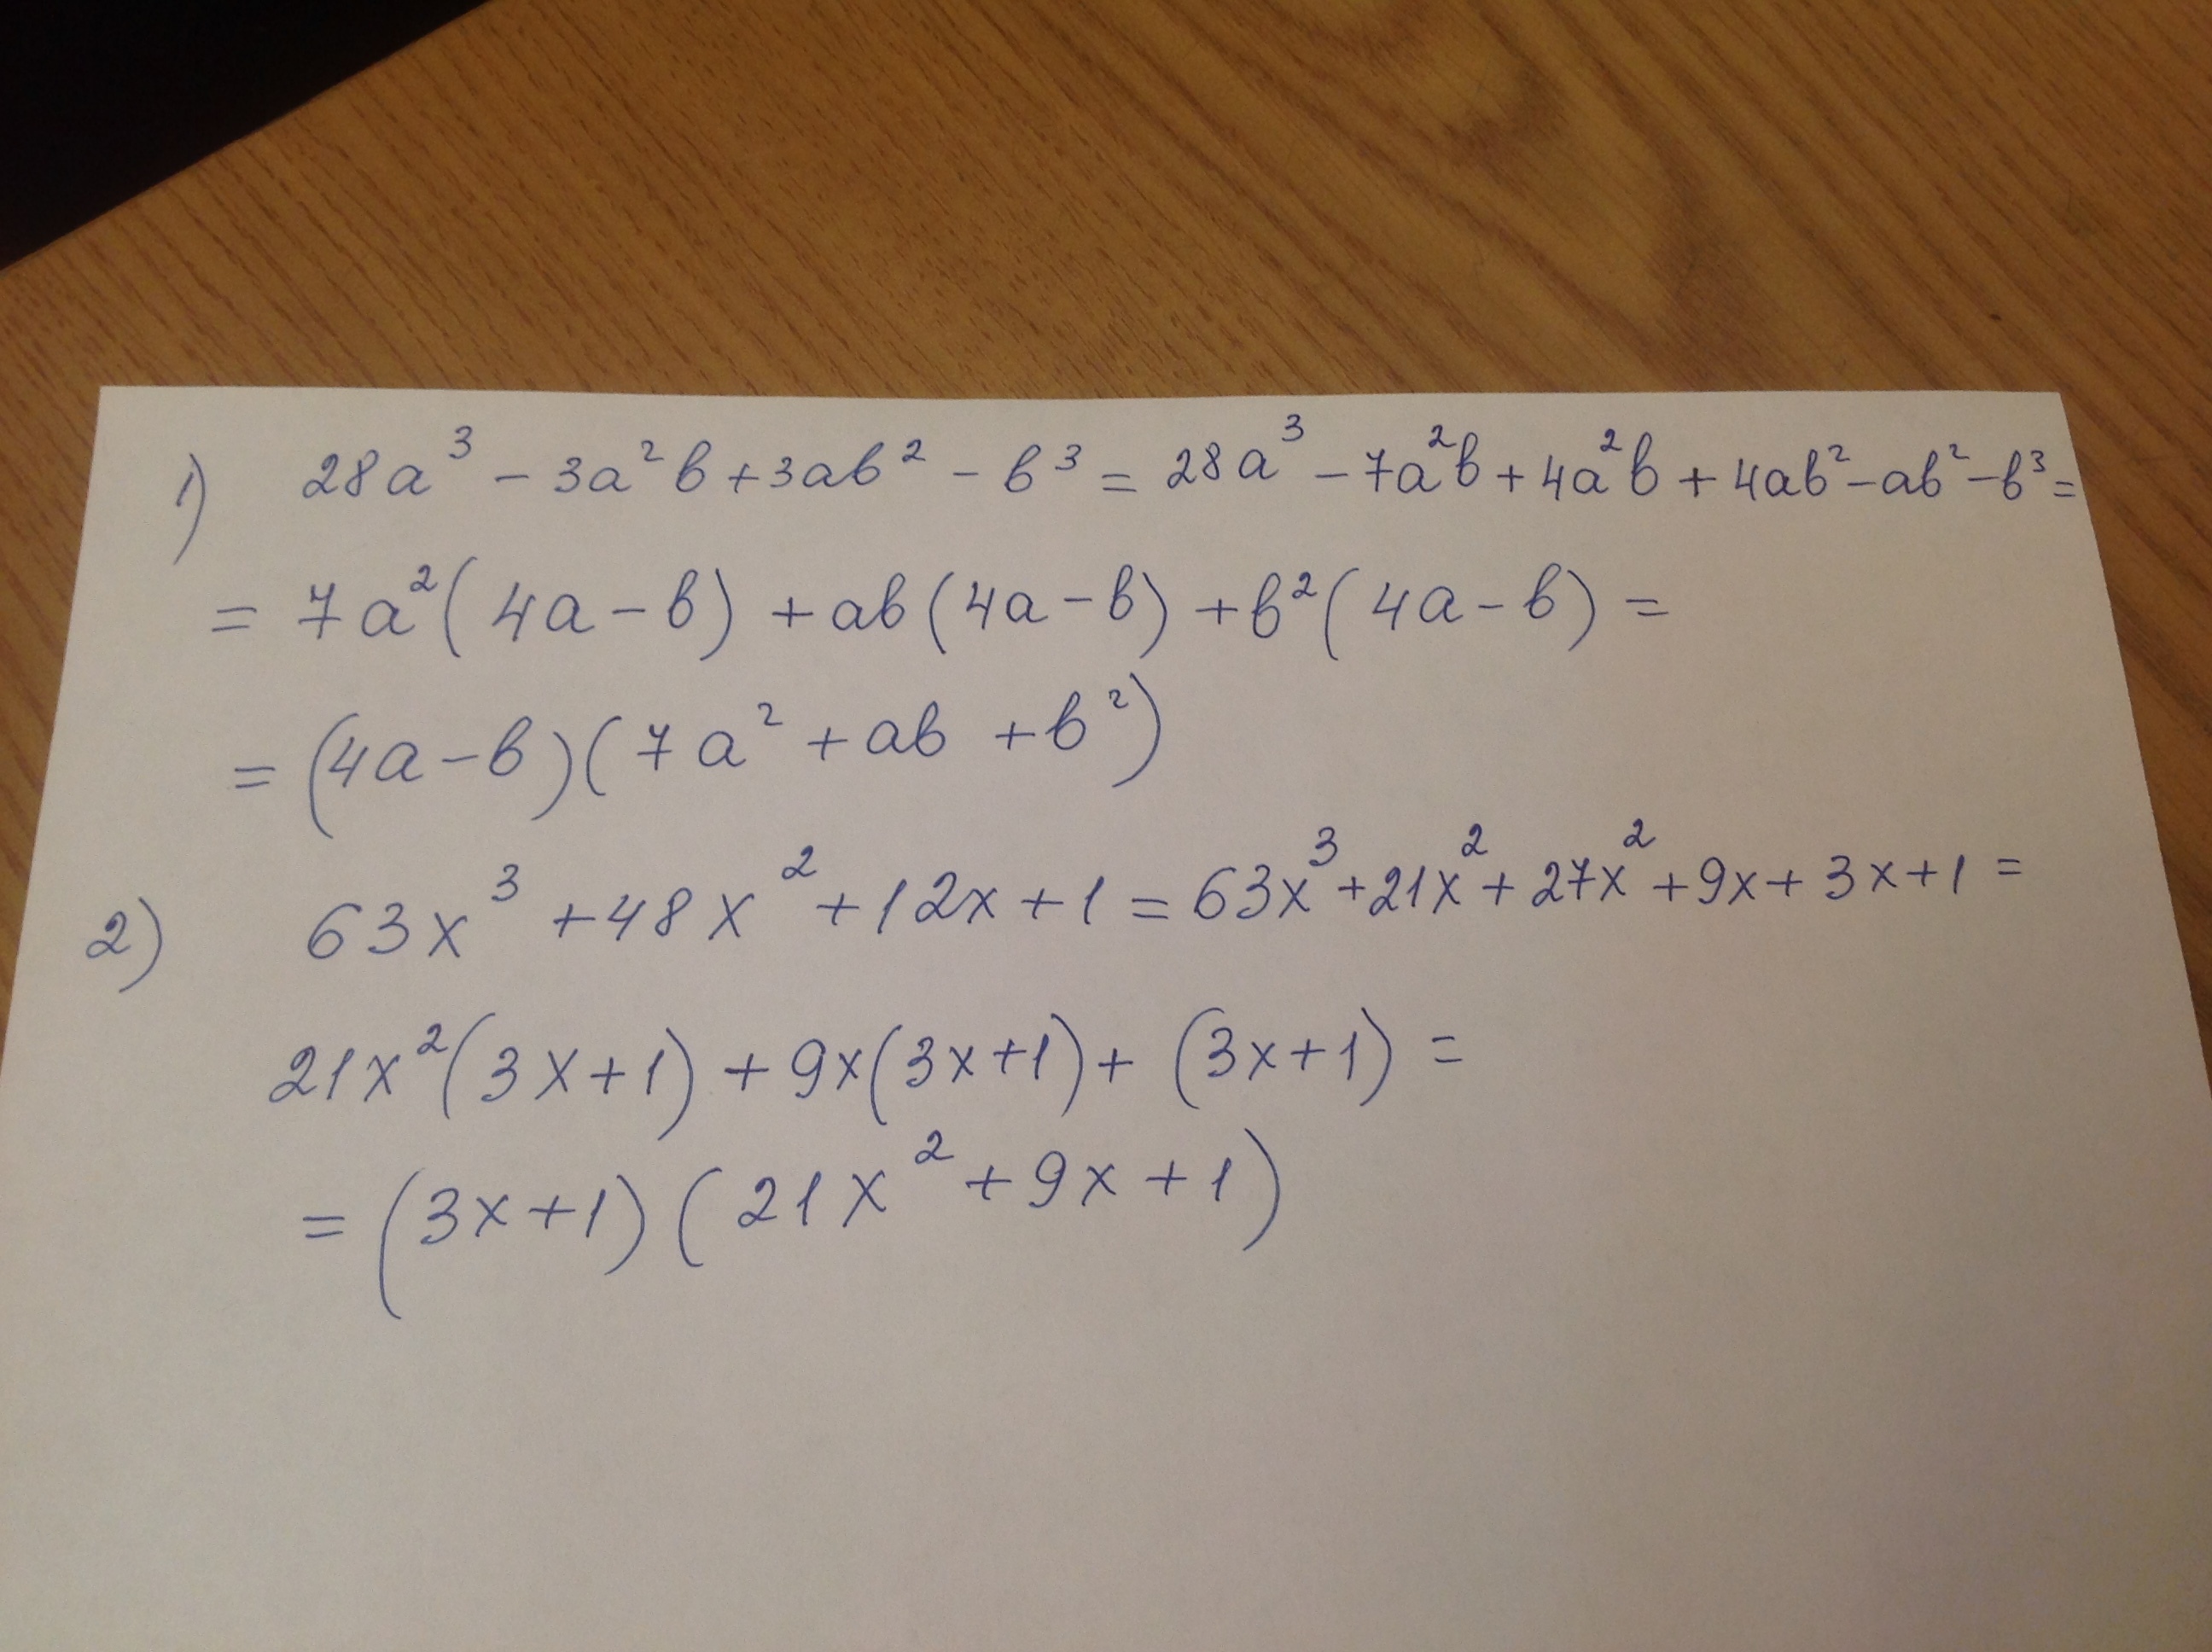 1) 28a³ - 3a²b + 3ab² - b³ = 28a³ - 7a²b + 4a²b + 4ab² - ab² - b³ =
= 7a²(4a - b) + ab(4a - b) + b²(4a - b) =
= (4a - b)(7a² + ab + b²)
2) 63x³ + 48x² + 12x + 1 = 63x³ + 21x² + 27x² + 9x + 3x + 1 =
21x²(3x + 1) + 9x(3x + 1) + (3x + 1) =
= (3x + 1)(21x² + 9x + 1)